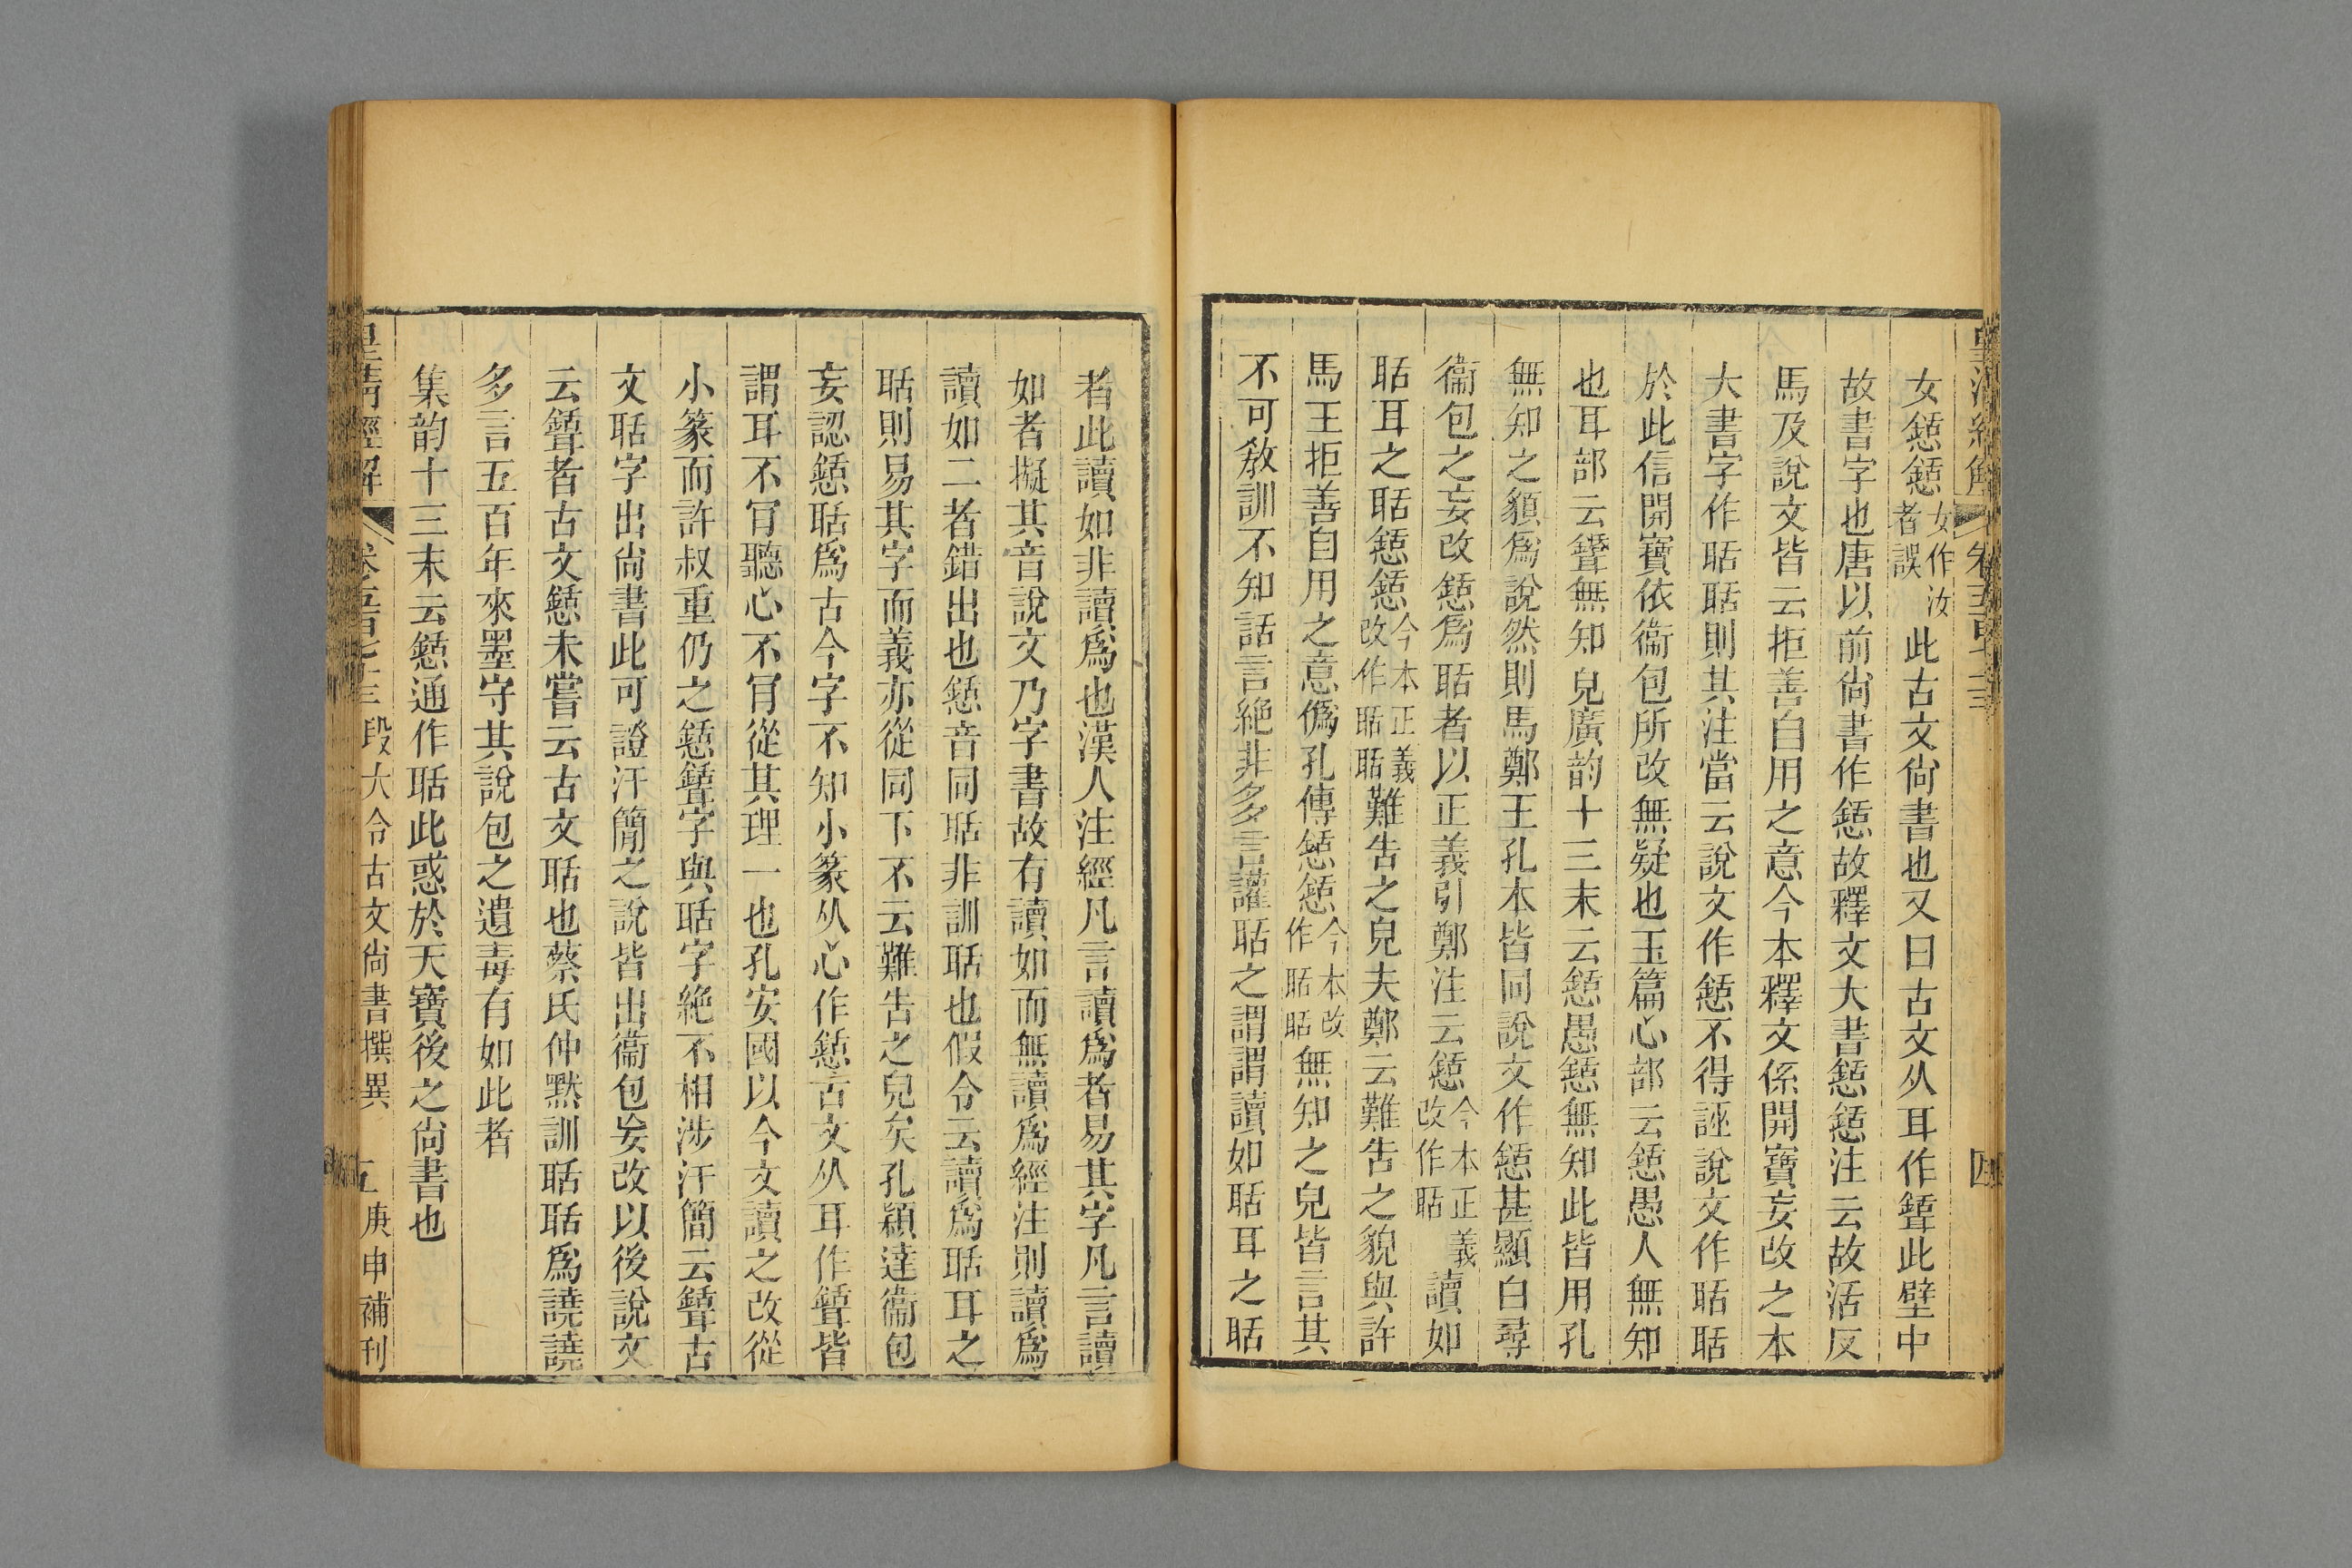 皇清經解 卷五百七十三 四
女懖懖女作汝者誤此古文尙書也又曰古文从耳作𦗒此壁中
故書字也唐以前尙書作懖故釋文大書懖懖注云故活反
馬及說文皆云拒善自用之意今本釋文係開寶妄改之本
大書字作聒聒則其注當云說文作懖不得誣說文作聒聒
於此信開寶依衞包所改無疑也玉篇心部云懖愚人無知
也耳部云𦗒無知皃廣韵十三末云懖愚懖無知此皆用孔
無知之䫉爲說然則馬鄭王孔本皆同說文作懖甚顯白尋
衞包之妄改懖爲聒者以正義引鄭注云懖今本正義改作聒讀如
聒耳之聒懖懖今本正義改作聒聒難告之皃夫鄭云難告之貌與許
馬王拒善自用之意僞孔傳懖懖今本改作聒聒無知之皃皆言其
不可敎訓不知話言絶非多言讙聒之謂謂讀如聒耳之聒
者此讀如非讀爲也漢人注經凡言讀爲者易其字凡言讀
如者擬其音說文乃字書故有讀如而無讀爲經注則讀爲
讀如二者錯出也懖音同聒非訓聒也假令云讀爲聒耳之
聒則易其字而義亦從同下不云難告之皃矣孔穎達衞包
妄認懖聒爲古今字不知小篆从心作懖古文从耳作𦗒皆
謂耳不肎聽心不肎從其理一也孔安國以今文讀之改從
小篆而許叔重仍之懖𦗒字與聒字絶不相涉汗簡云𦗒古
文聒字出尙書此可證汗簡之說皆出衞包妄改以後說文
云𦗒者古文懖未嘗云古文聒也蔡氏仲黙訓聒聒爲譊譊
多言五百年來墨守其說包之遺毒有如此者
集韵十三末云懖通作聒此惑於天寶後之尙書也
皇清經解 卷五百七十三 段大令古文尙書撰異 五 庚申補刊